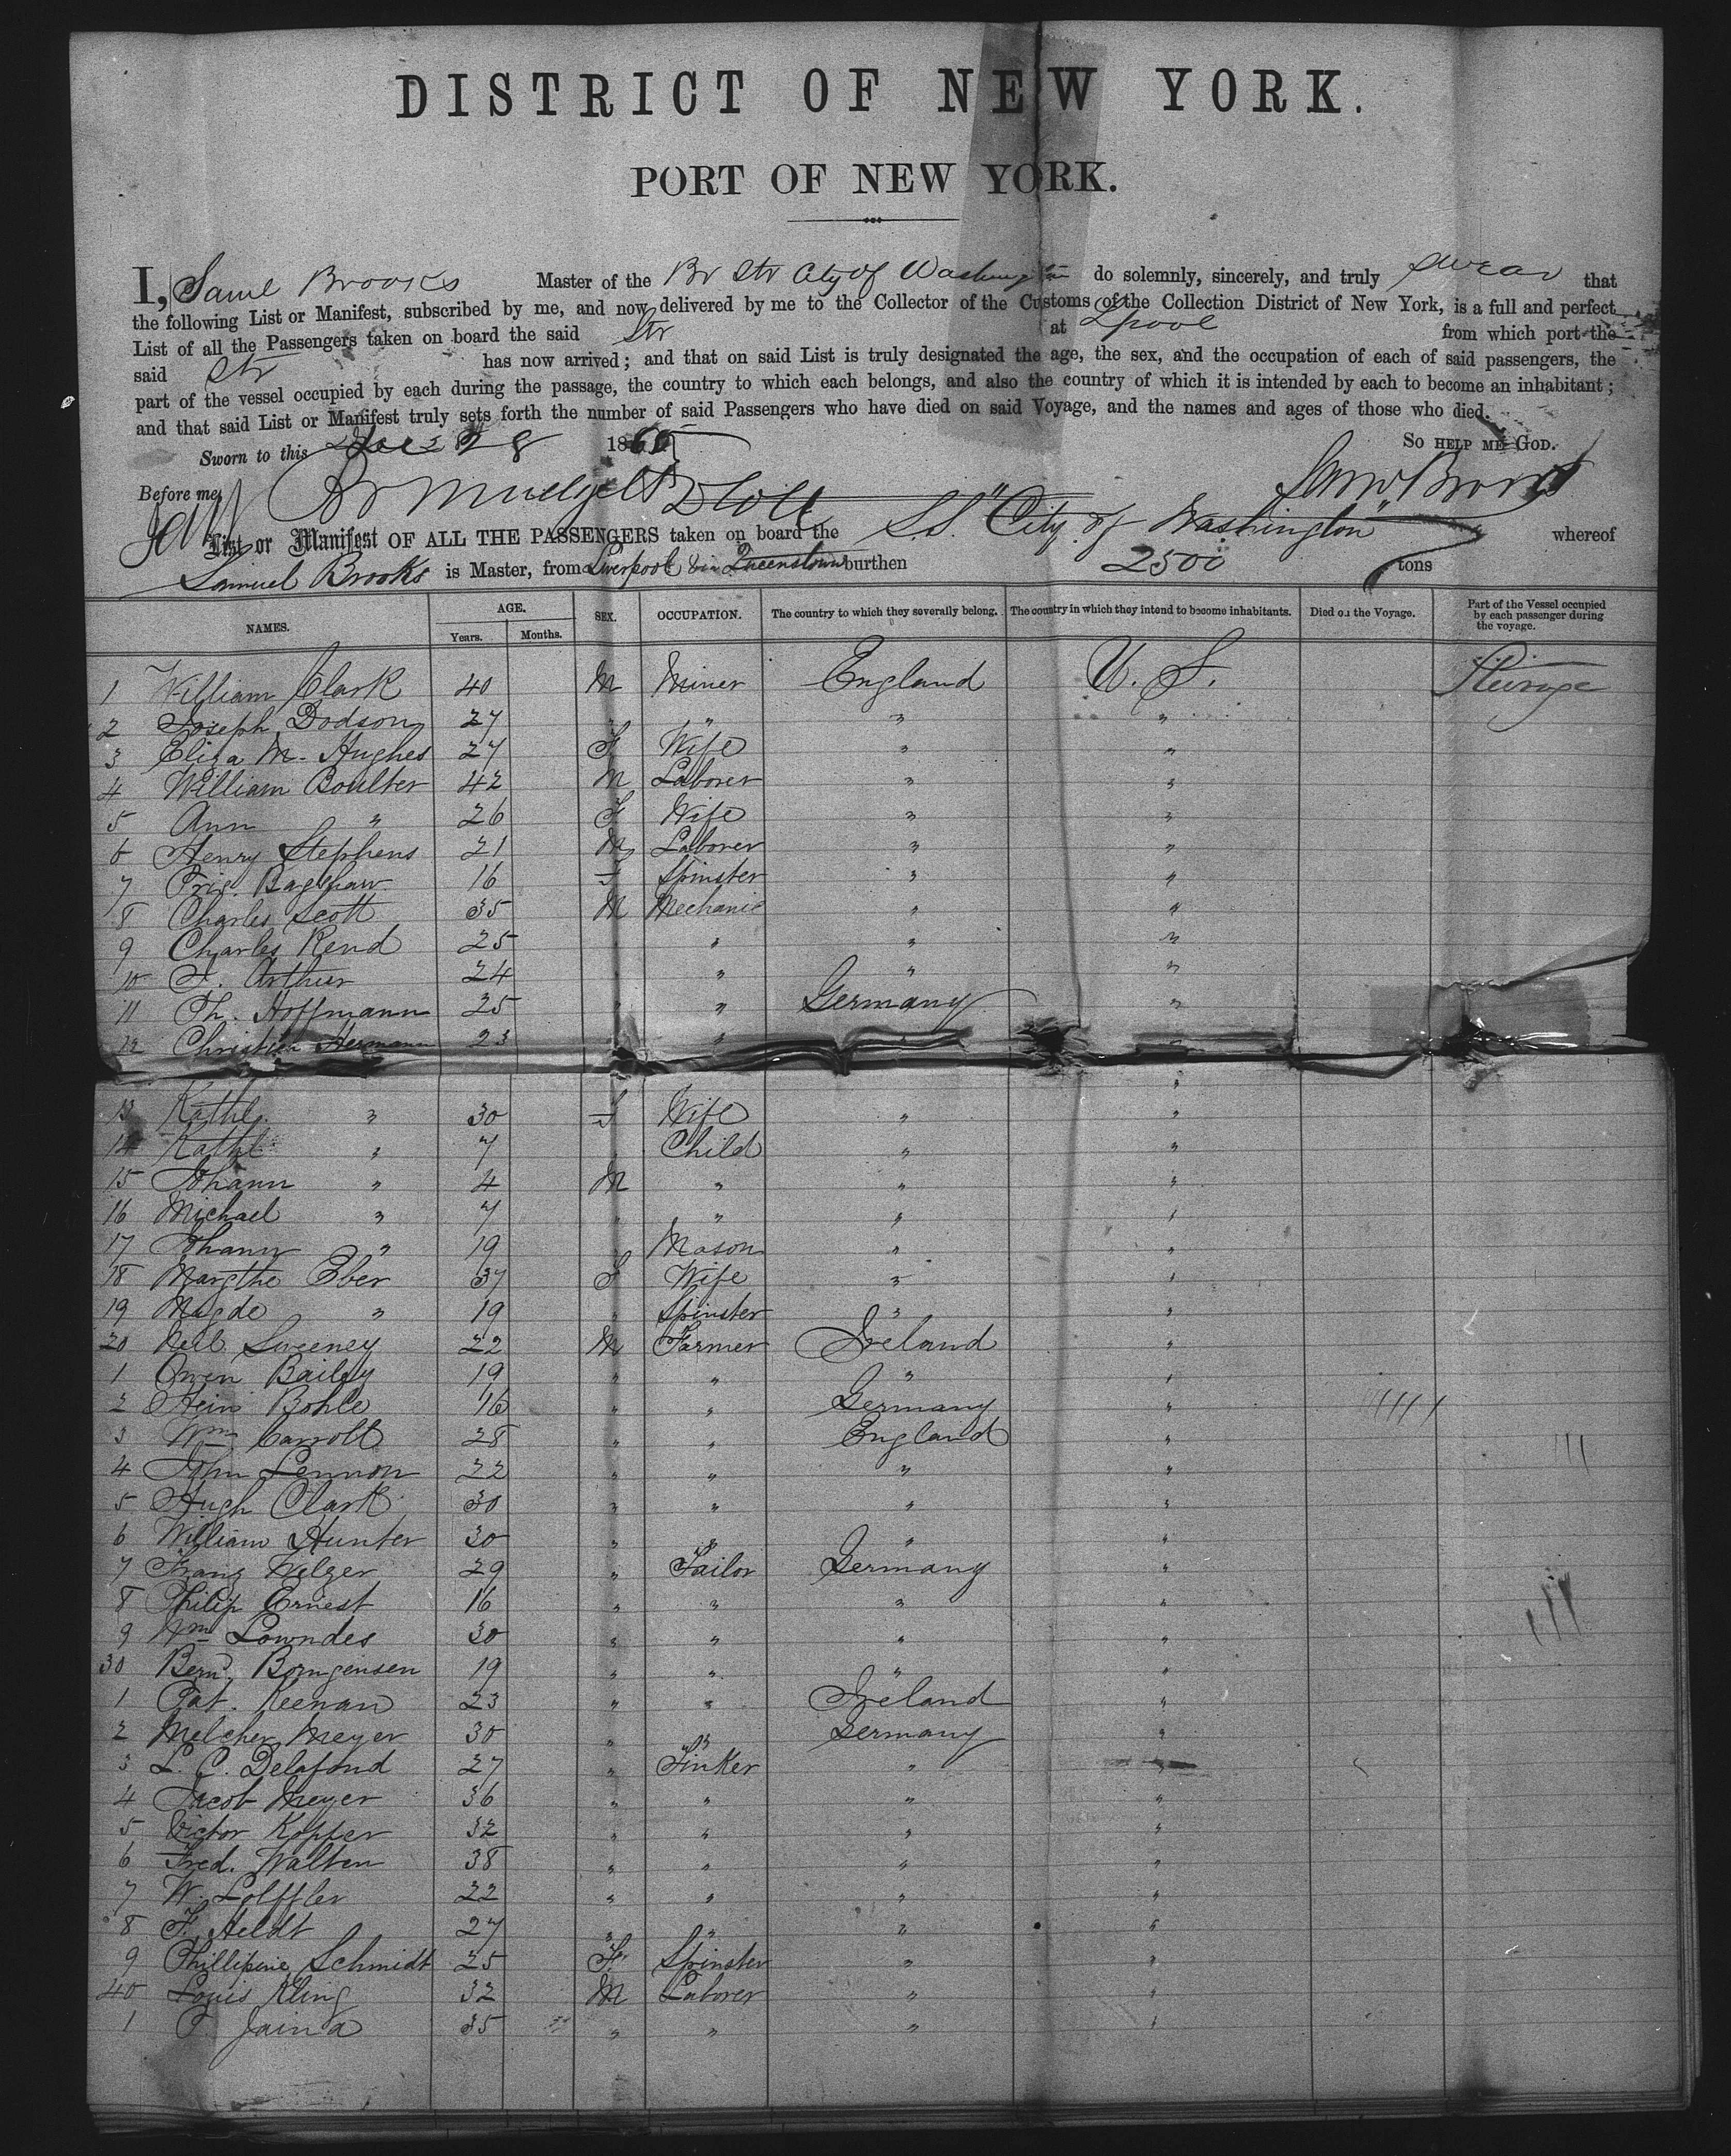 DISTRICT OF NEW YORK.
PORT OF NEW YORK.
I, Saml Brooks Master of the Br Str City of Washington do solemnly, sincerely, and truly swear that
the following List or Manifest, subscribed by me, and now delivered by me to the Collector of the Customs of the Collection District of New York, is a full and perfect
List of all the Passengers taken on board the said Str at Lpool from which port the
said Str has now arrived; and that on said List is truly designated the age, the sex, and the occupation of each of said passengers, the
part of the vessel occupied by each during the passage, the country to which each belongs, and also the country of which it is intended by each to become an inhabitant;
and that said List or Manifest truly sets forth the number of said Passengers who have died on said Voyage, and the names and ages of those who died.
Sworn to this Dec 28 1865 SO HELP ME GOD.
Before me, Saml Brooks
List or Manifest OF ALL THE PASSENGERS taken on board the S.S. "City of Washington" whereof
Samuel Brooks is Master, from Liverpool & via Queenstown burthen 2500 tons
NAMES. AGE. Years. Months. SEX. OCCUPATION. The country to which they severally belong. The country in which they intend to become inhabitants. Died on the Voyage. Part of the Vessel occupied by each passenger during the voyage.
1 William Clark 40 M Miner England U.S. Steerage
2 Joseph Dodson 27 " " " "
3 Eliza M. Hughes 27 F Wife " "
4 William Boulter 42 M Laborer " "
5 Ann " 26 F Wife " "
6 Henry Stephens 21 M Laborer " "
7 Bagshaw 16 F Spinster " "
8 Charles Scott 35 M Mechanic " "
9 Charles Rend 25 " " "
10 Arthur 24 " " "
11 Th. Hoffmann 25 " " Germany "
12 Christian Hermann 23 "
13 Kathe " 30 F Wife " "
14 Kathe " 7 Child " "
15 Johann " 4 M " " "
16 Michael " 7 " " " "
17 Johann " 19 Mason " "
18 Margthe Eber 37 F Wife " "
19 Magde " 19 " Spinster " "
20 Neil Sweeney 22 M Farmer Ireland "
1 Owen Bailey 19 " " " "
2 Hein Bohle 16 " " Germany "
3 Wm Carroll 28 " " England "
4 John Lennon 22 " " " "
5 Hugh Clark 30 " " " "
6 William Hunter 30 " " " "
7 Franz Welzer 29 " Tailor Germany "
8 Philip Ernest 16 " " " "
9 Wm Lowndes 30 " " " "
30 Bernd. Borngensen 19 " " " "
1 Pat. Keenan 23 " " Ireland "
2 Melcher Meyer 30 " " Germany "
3 L. C. Delafond 27 " Tinker " "
4 Jacob Meyer 36 " " " "
5 Victor Kopfer 32 " " " "
6 Fred. Walten 38 " " " "
7 W. Lolffler 22 " " " "
8 F. Heldt 27 " " " "
9 Phillipine Schmidt 25 F Spinster " "
40 Louis Kling 32 M Laborer " "
1 Jaina 35 " " " "